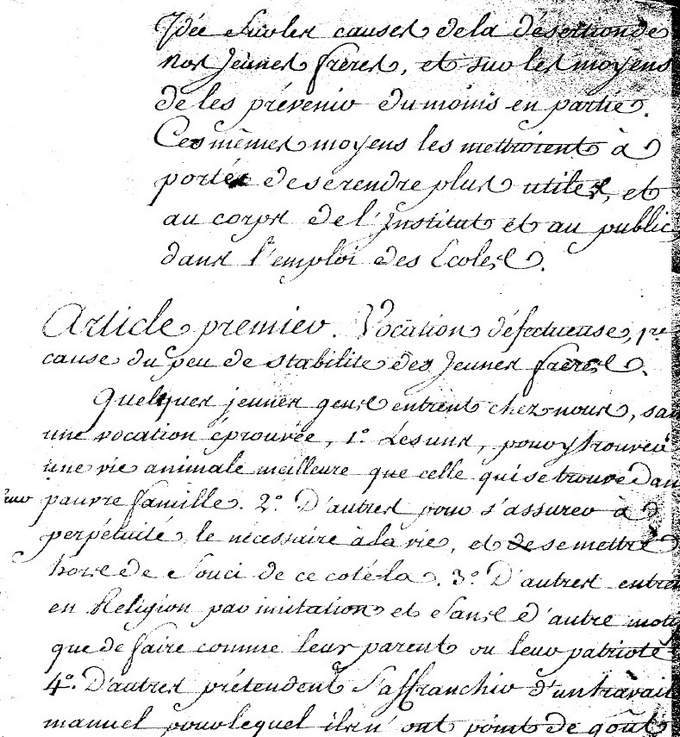 Idée sur les causes de la désertion de
nos jeunes frères, et sur les moyens
de les prévenir du moins en partie.
Ces mêmes moyens les mettroient à
portée de se rendre plus utiles, et
au corps de l'Institut et au public
dans l'emploi des Ecoles.
Article premier. Vocation défectueuse, 1re
cause du peu de stabilité des jeunes frères.
Quelques jeunes gens entrent chez nous, san
une vocation éprouvée, 1º. Les uns, pour y trouver
une vie animale meilleure que celle qui se trouve dan
leur pauvre famille. 2º. D'autres pour s'assurer à
perpétuité, le nécessaire à la vie, et de se mettre
hors de souci de ce coté-là. 3º. D'autres entre
en Religion par imitation et sans d'autre moti
que de faire comme leur parent ou leur patriote
4º. D'autres prétendent s'affranchir d'un travail
manuel pour lequel ils n'ont point de goût